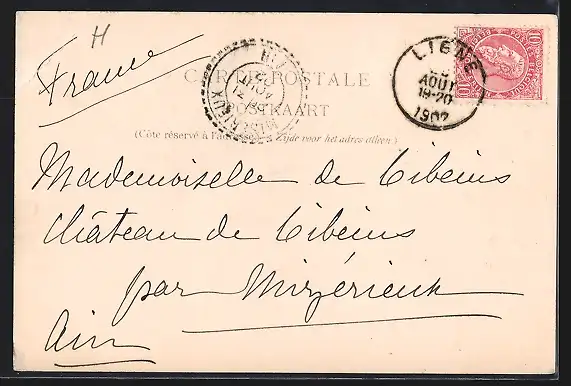 H
France
CARTE POSTALE
POSTKAART
(Côté réservé à l'adresse. — Zijde voor het adres alleen.)
LIGNE
AOUT
18-20
1902
10 10
Mademoiselle de Cibeins
Château de Cibeins
par Mizérieux
Ain